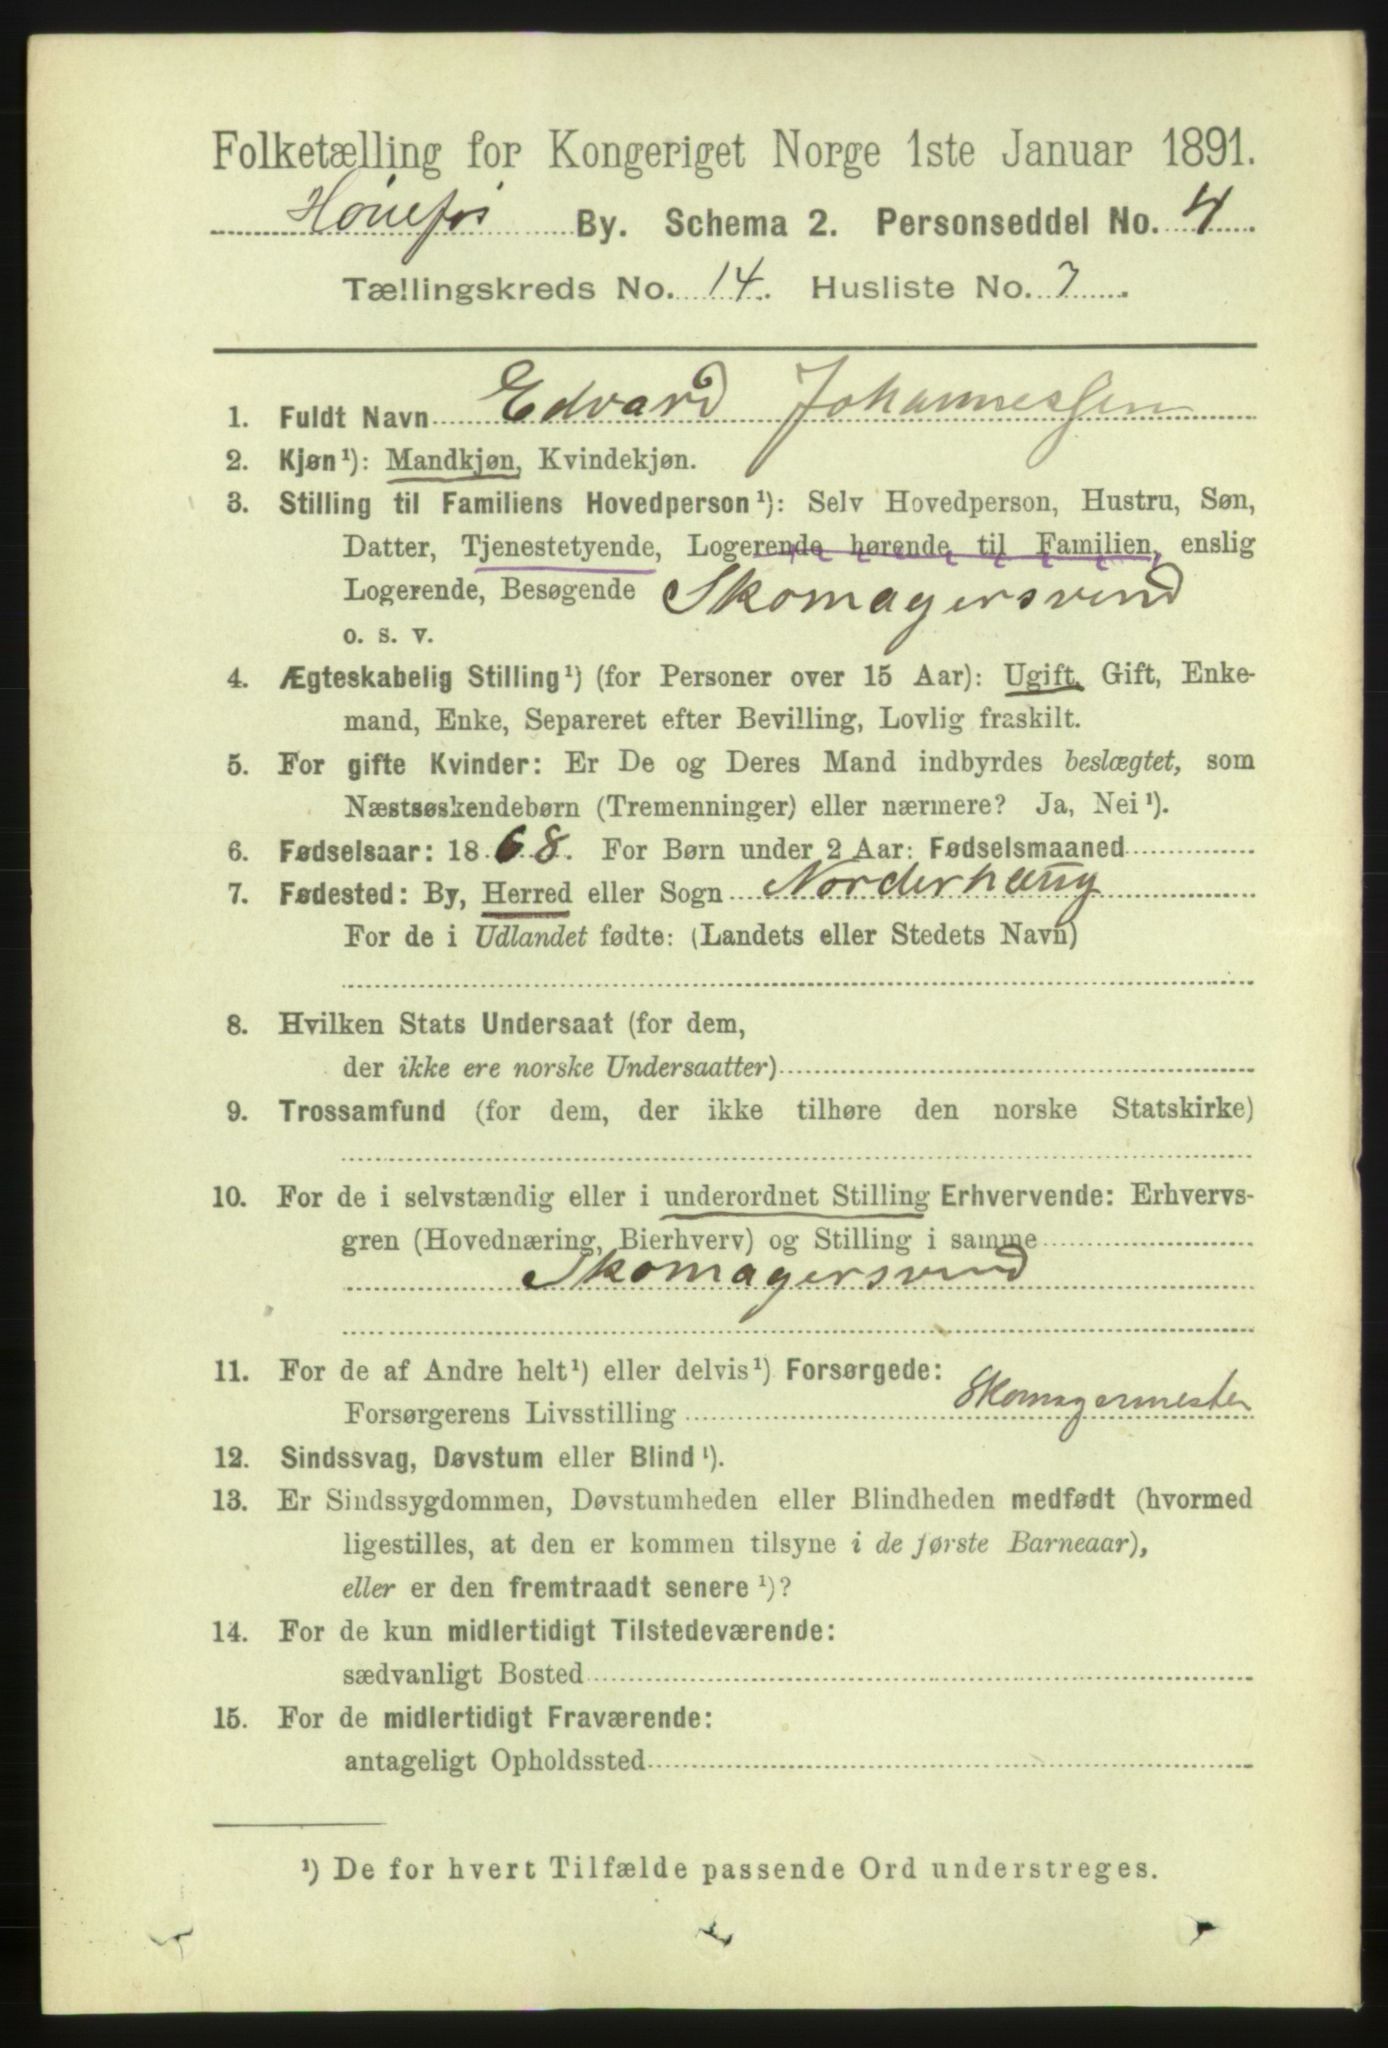 Folketælling for Kongeriget Norge 1ste Januar 1891.
Hønefos By. Schema 2. Personseddel No. 4.
Tællingskreds No. 14. Husliste No. 7.
1. Fuldt Navn Edvard Johannessen
2. Kjøn¹): Mandkjøn, Kvindekjøn.
3. Stilling til Familiens Hovedperson¹): Selv Hovedperson, Hustru, Søn,
Datter, Tjenestetyende, Logerende hørende til Familien, enslig
Logerende, Besøgende Skomagersvend
o. s. v.
4. Ægteskabelig Stilling¹) (for Personer over 15 Aar): Ugift, Gift, Enke-
mand, Enke, Separeret efter Bevilling, Lovlig fraskilt.
5. For gifte Kvinder: Er De og Deres Mand indbyrdes beslægtet, som
Næstsøskendebørn (Tremenninger) eller nærmere? Ja, Nei¹).
6. Fødselsaar: 1868. For Børn under 2 Aar: Fødselsmaaned
7. Fødested: By, Herred eller Sogn Norderhaug
For de i Udlandet fødte: (Landets eller Stedets Navn)
8. Hvilken Stats Undersaat (for dem,
der ikke ere norske Undersaatter)
9. Trossamfund (for dem, der ikke tilhøre den norske Statskirke)
10. For de i selvstændig eller i underordnet Stilling Erhvervende: Erhvervs-
gren (Hovednæring, Bierhverv) og Stilling i samme
Skomagersvend
11. For de af Andre helt¹) eller delvis¹) Forsørgede:
Forsørgerens Livsstilling Skomagermester
12. Sindssvag, Døvstum eller Blind¹).
13. Er Sindssygdommen, Døvstumheden eller Blindheden medfødt (hvormed
ligestilles, at den er kommen tilsyne i de første Barneaar),
eller er den fremtraadt senere¹)?
14. For de kun midlertidigt Tilstedeværende:
sædvanligt Bosted
15. For de midlertidigt Fraværende:
antageligt Opholdssted
¹) De for hvert Tilfælde passende Ord understreges.